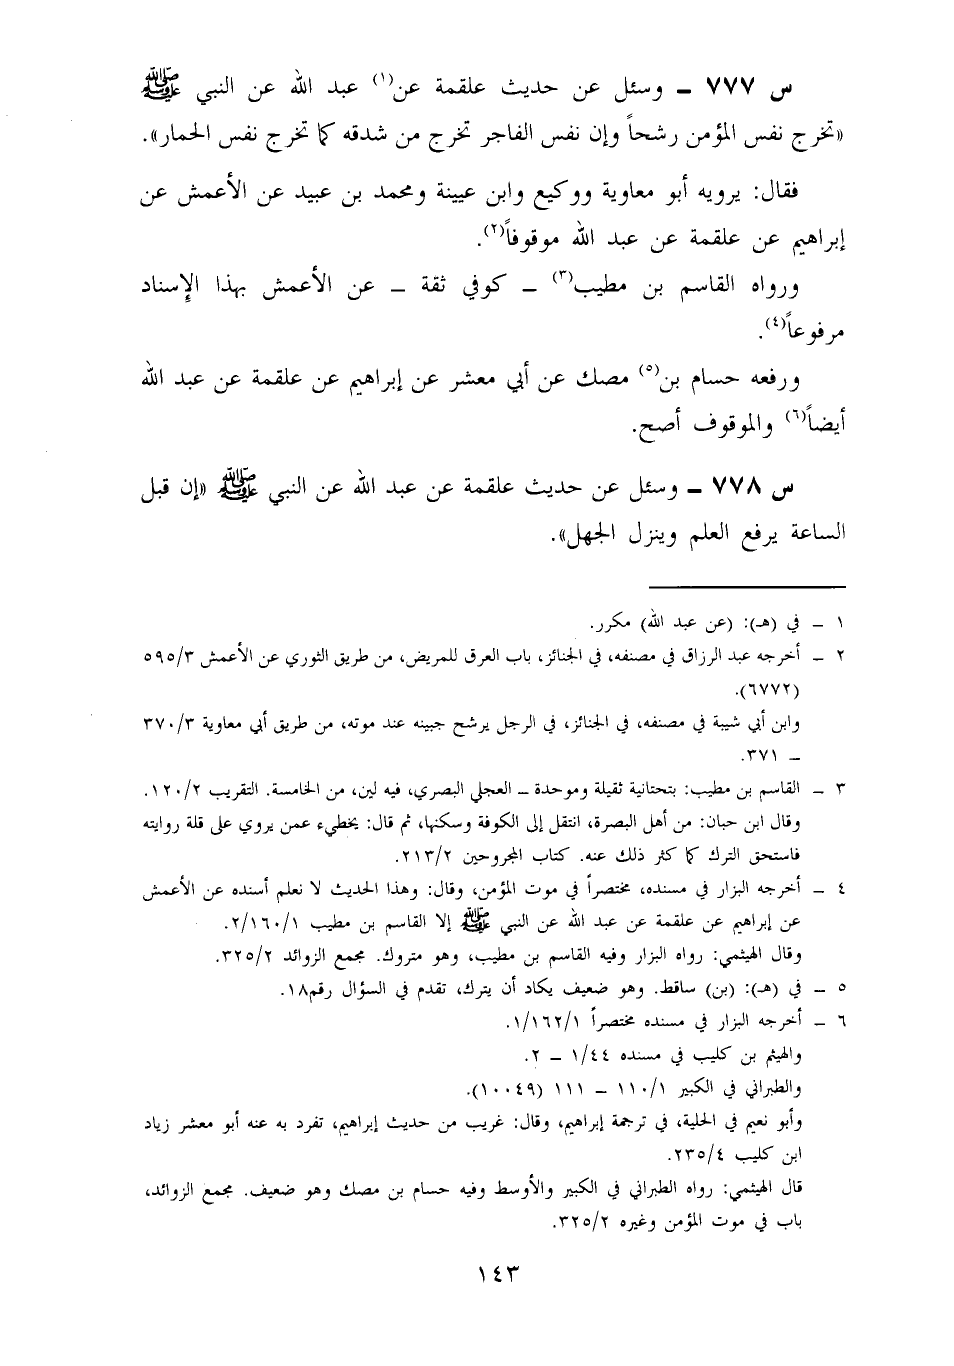 س ٧٧٧ ــ وسئل عن حديث علقمة عن(١) عبد الله عن النبي ﷺ
«تخرج نفس المؤمن رشحاً وإن نفس الفاجر تخرج من شدقه كما تخرج نفس الحمار».
فقال: يرويه أبو معاوية ووكيع وابن عيينة ومحمد بن عبيد عن الأعمش عن
إبراهيم عن علقمة عن عبد الله موقوفاً(٢).
ورواه القاسم بن مطيب(٣) ــ كوفي ثقة ــ عن الأعمش بهذا الإسناد
مرفوعاً(٤).
ورفعه حسام بن(٥) مصك عن أبي معشر عن إبراهيم عن علقمة عن عبد الله
أيضاً(٦) والموقوف أصح.
س ٧٧٨ ــ وسئل عن حديث علقمة عن عبد الله عن النبي ﷺ «إن قبل
الساعة يرفع العلم وينزل الجهل».
١ ــ في (هـ): (عن عبد الله) مكرر.
٢ ــ أخرجه عبد الرزاق في مصنفه، في الجنائز، باب العرق للمريض، من طريق الثوري عن الأعمش ٥٩٥/٣
(٦٧٧٢).
وابن أبي شيبة في مصنفه، في الجنائز، في الرجل يرشح جبينه عند موته، من طريق أبي معاوية ٣٧٠/٣
ــ ٣٧١.
٣ ــ القاسم بن مطيب: بتحتانية ثقيلة وموحدة ــ العجلي البصري، فيه لين، من الخامسة. التقريب ١٢٠/٢.
وقال ابن حبان: من أهل البصرة، انتقل إلى الكوفة وسكنها، ثم قال: يخطيء عمن يروي على قلة روايته
فاستحق الترك كما كثر ذلك عنه. كتاب المجروحين ٢١٣/٢.
٤ ــ أخرجه البزار في مسنده، مختصراً في موت المؤمن، وقال: وهذا الحديث لا نعلم أسنده عن الأعمش
عن إبراهيم عن علقمة عن عبد الله عن النبي ﷺ إلا القاسم بن مطيب ٢/١٦٠/١.
وقال الهيثمي: رواه البزار وفيه القاسم بن مطيب، وهو متروك. مجمع الزوائد ٣٢٥/٢.
٥ ــ في (هـ): (بن) ساقط. وهو ضعيف يكاد أن يترك، تقدم في السؤال رقم١٨.
٦ ــ أخرجه البزار في مسنده مختصراً ١/١٦٢/١.
والهيثم بن كليب في مسنده ١/٤٤ ــ ٢.
والطبراني في الكبير ١١٠/١ ــ ١١١ (١٠٠٤٩).
وأبو نعيم في الحلية، في ترجمة إبراهيم، وقال: غريب من حديث إبراهيم، تفرد به عنه أبو معشر زياد
ابن كليب ٢٣٥/٤.
قال الهيثمي: رواه الطبراني في الكبير والأوسط وفيه حسام بن مصك وهو ضعيف. مجمع الزوائد،
باب في موت المؤمن وغيره ٣٢٥/٢.
١٤٣